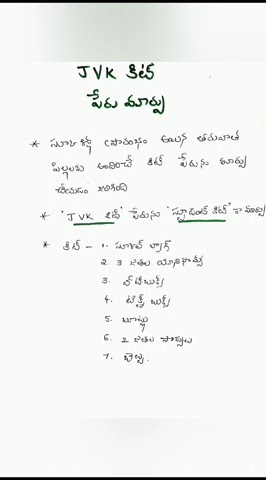 JVK కిట్
పేరు మార్పు
* స్కూల్స్ ప్రారంభం అయిన తరువాత
పిల్లలకు అందించే కిట్ పేరును మార్పు
చేయడం జరిగింది
* "JVK కిట్" పేరును "స్టూడెంట్ కిట్" గా మార్పు
* కిట్ - 1. స్కూల్ బ్యాగ్
2. 3 జతల యూనిఫామ్స్
3. నోట్ బుక్స్
4. టెక్స్ట్ బుక్స్
5. బూట్లు
6. 2 జతల సాక్సులు
7. బెల్టు.